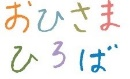 おひさま
ひろば